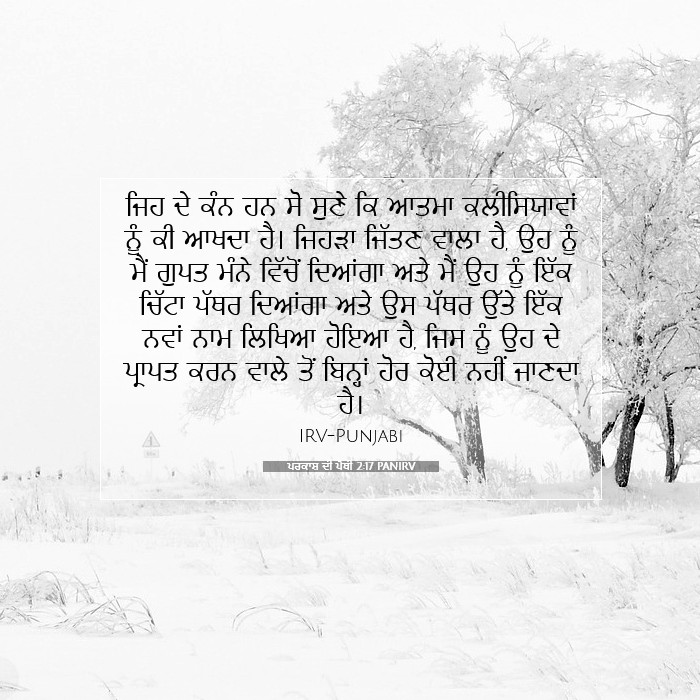 ਜਿਹ ਦੇ ਕੰਨ ਹਨ ਸੋ ਸੁਣੇ ਕਿ ਆਤਮਾ ਕਲੀਸਿਯਾਵਾਂ
ਨੂੰ ਕੀ ਆਖਦਾ ਹੈ। ਜਿਹੜਾ ਜਿੱਤਣ ਵਾਲਾ ਹੈ, ਉਹ ਨੂੰ
ਮੈਂ ਗੁਪਤ ਮੰਨੇ ਵਿੱਚੋਂ ਦਿਆਂਗਾ ਅਤੇ ਮੈਂ ਉਹ ਨੂੰ ਇੱਕ
ਚਿੱਟਾ ਪੱਥਰ ਦਿਆਂਗਾ ਅਤੇ ਉਸ ਪੱਥਰ ਉੱਤੇ ਇੱਕ
ਨਵਾਂ ਨਾਮ ਲਿਖਿਆ ਹੋਇਆ ਹੈ, ਜਿਸ ਨੂੰ ਉਹ ਦੇ
ਪ੍ਰਾਪਤ ਕਰਨ ਵਾਲੇ ਤੋਂ ਬਿਨ੍ਹਾਂ ਹੋਰ ਕੋਈ ਨਹੀਂ ਜਾਣਦਾ
ਹੈ।
IRV-Punjabi
ਪਰਕਾਸ਼ ਦੀ ਪੋਥੀ 2:17 PANIRV